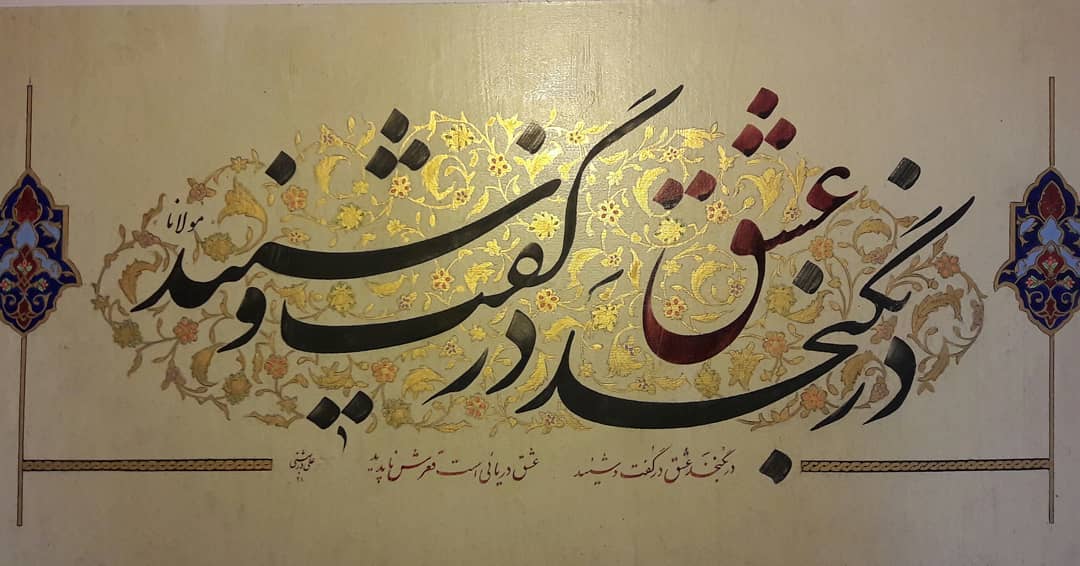 در نگنجد عشق در گفت و شنید
مولانا
در نگنجد عشق در گفت و شنید عشق دریائی است قعرش ناپدید